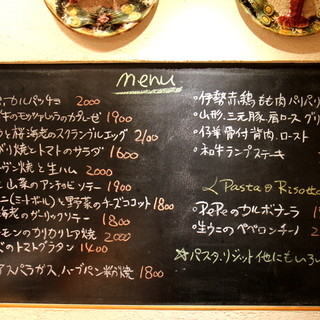 menu
カルパッチョ 2000
カプレーゼ 1900
と桜海老のスクランブルエッグ 2100
焼とトマトのサラダ 1600
焼と生ハム 2000
と山菜のアンチョビソテー 1900
(ミートボル)と野菜のチーズココット 1800
海老のガーリックソテー 1800
モンのカリカリレア焼 2000
のトマトグラタン 1400
アスパラガス、ハーブパン粉焼 1800
・伊勢赤鶏もも肉パリパリ
・山形、三元豚肩ロースグリ
・仔羊骨付背肉、ロースト
・和牛ランプステーキ
Pasta & Risotto
・PePeのカルボナーラ
・生うにのペペロンチーノ 2
☆パスタ、リゾット他にもいろい